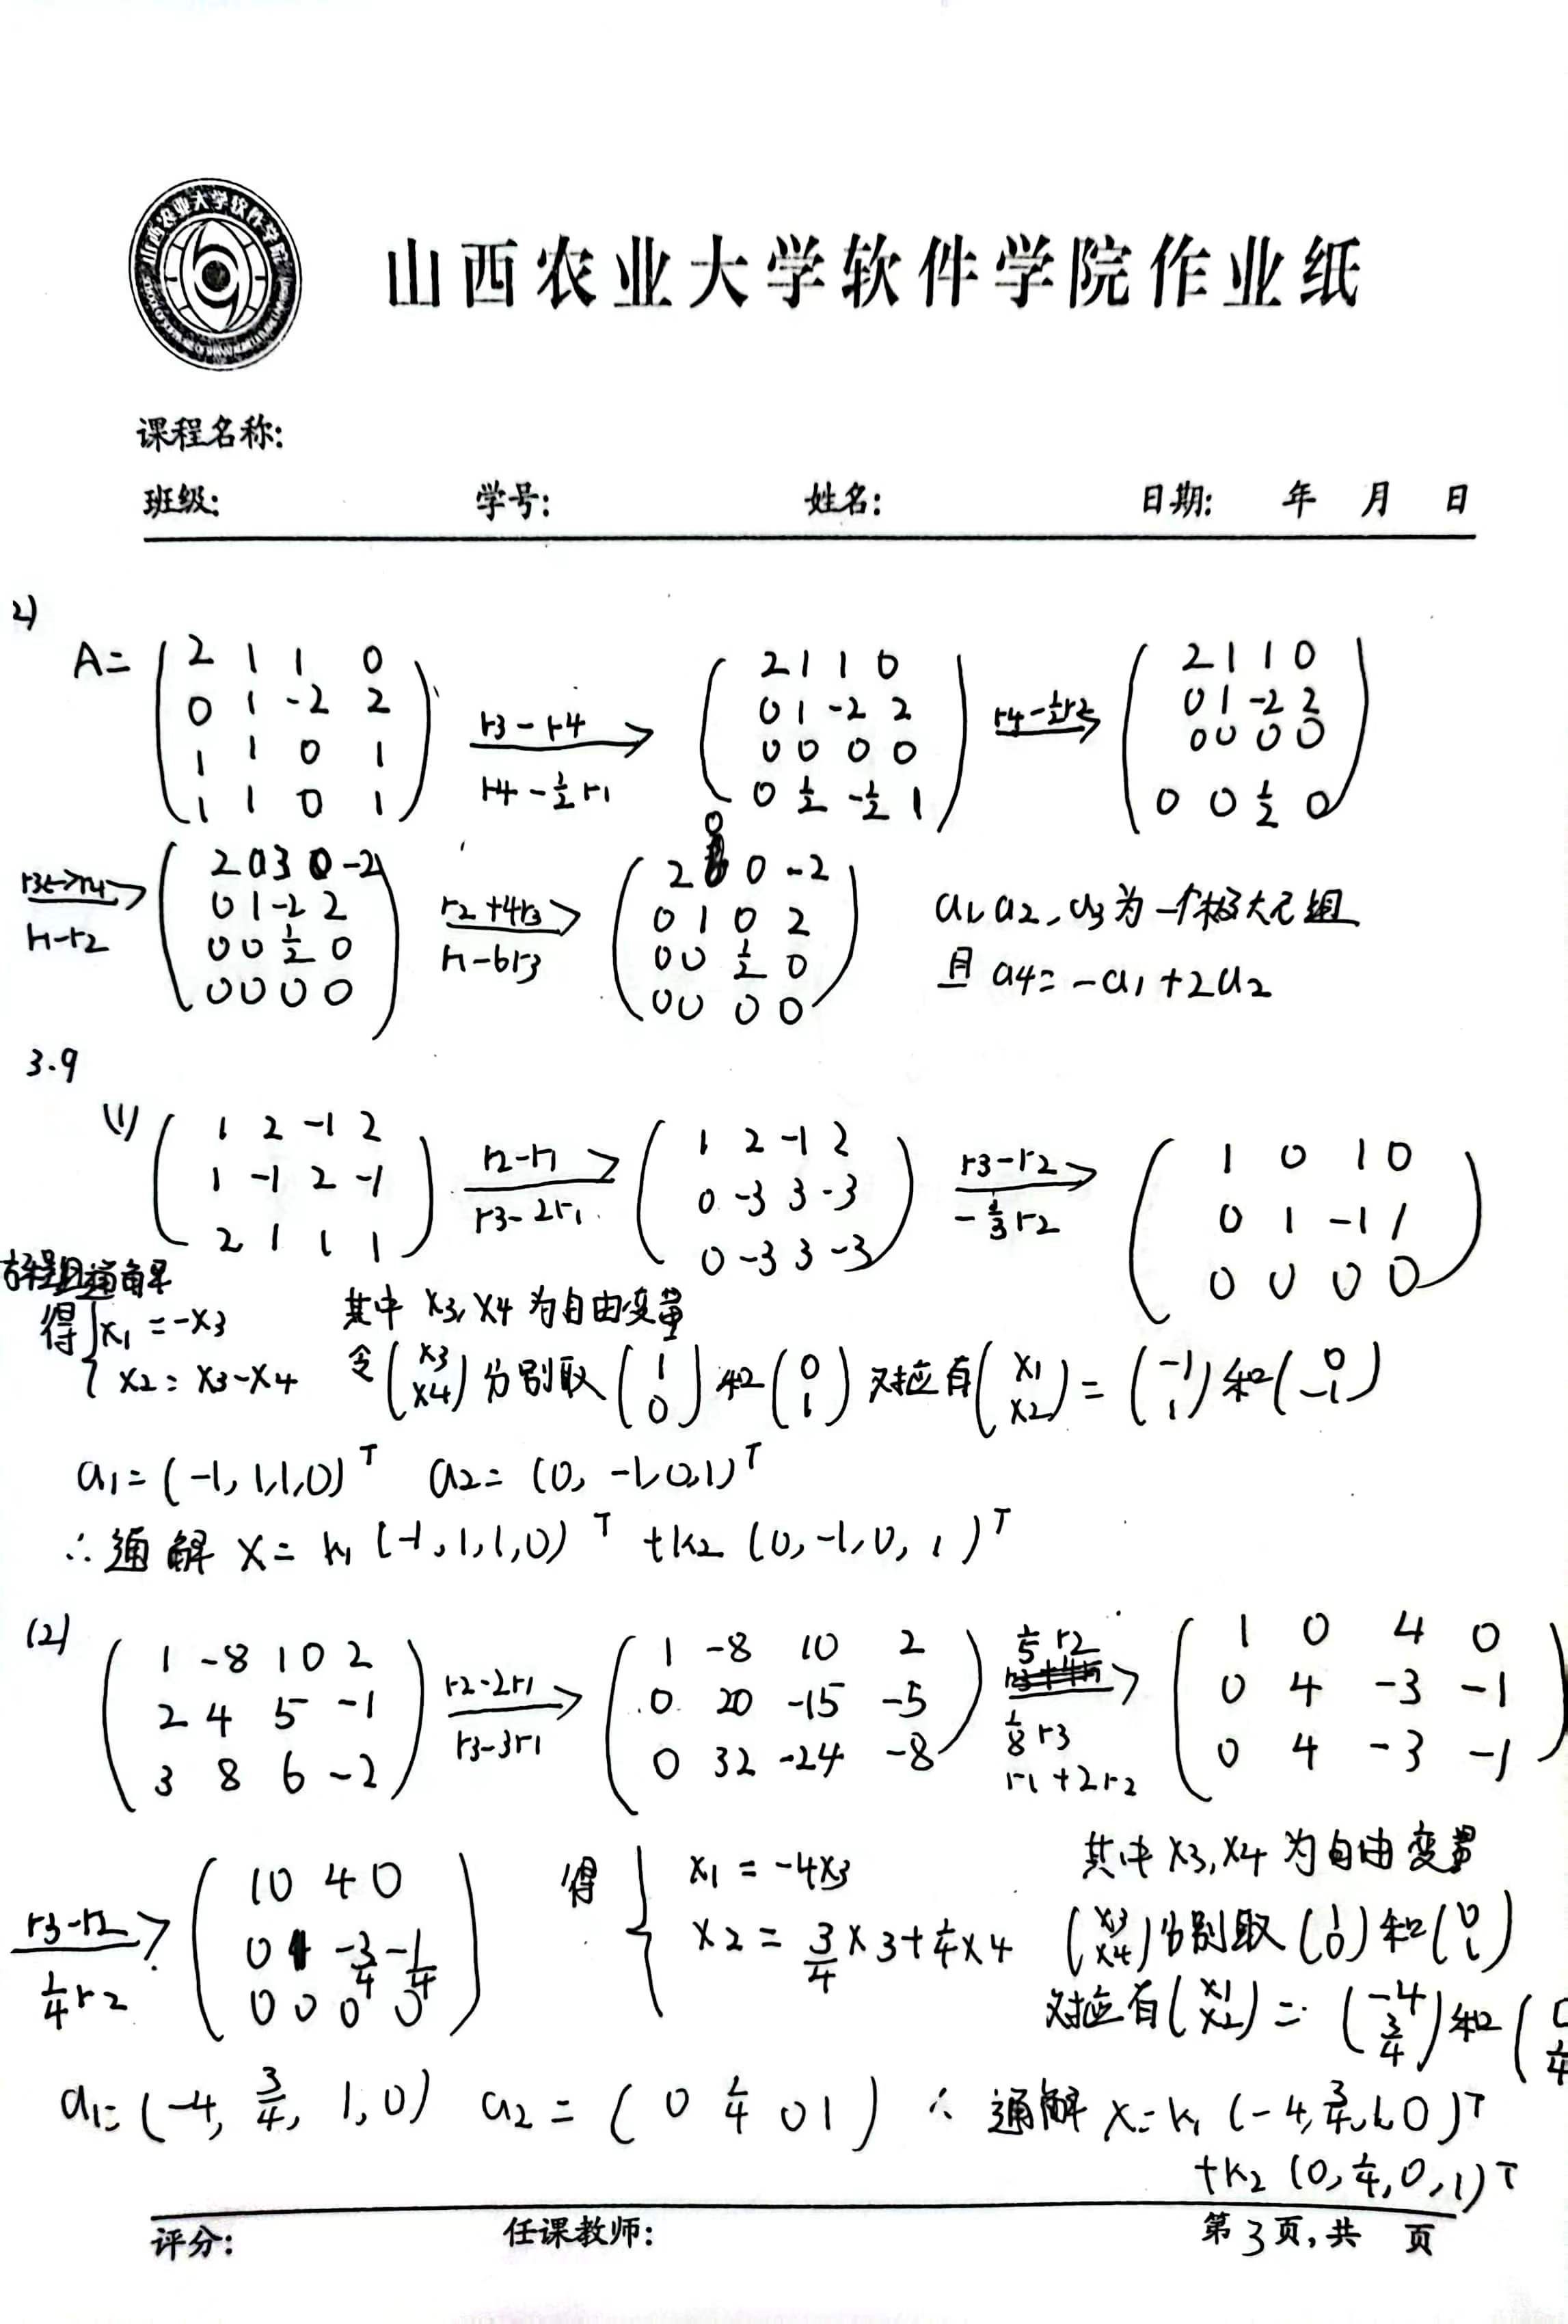 山西农业大学软件学院
山西农业大学软件学院作业纸
课程名称:
班级: 学号: 姓名: 日期: 年 月 日
2)
A= ( 2 1 1 0
0 1 -2 2
1 1 0 1
1 1 0 1 )
r3-r4
r4-½r1
( 2 1 1 0
0 1 -2 2
0 0 0 0
0 ½ -½ 1 )
r4-½r2
( 2 1 1 0
0 1 -2 2
0 0 0 0
0 0 ½ 0 )
r3↔r4
r1-r2
( 2 0 3 -2
0 1 -2 2
0 0 ½ 0
0 0 0 0 )
r2+4r3
r1-6r3
( 2 0 0 -2
0 1 0 2
0 0 ½ 0
0 0 0 0 )
a1,a2,a3为一个极大无关组
且 a4=-a1+2a2
3.9
(1)
( 1 2 -1 2
1 -1 2 -1
2 1 1 1 )
r2-r1
r3-2r1
( 1 2 -1 2
0 -3 3 -3
0 -3 3 -3 )
r3-r2
-⅓r2
( 1 0 1 0
0 1 -1 1
0 0 0 0 )
方程组通解
得{ x1=-x3
x2=x3-x4
其中 x3,x4 为自由变量
令(x3 x4)分别取(1 0)和(0 1)对应有(x1 x2)=(-1 1)和(0 -1)
a1=(-1,1,1,0)ᵀ a2=(0,-1,0,1)ᵀ
∴通解 x=k1(-1,1,1,0)ᵀ+k2(0,-1,0,1)ᵀ
(2)
( 1 -8 10 2
2 4 5 -1
3 8 6 -2 )
r2-2r1
r3-3r1
( 1 -8 10 2
0 20 -15 -5
0 32 -24 -8 )
⅕r2
⅛r3
r1+2r2
( 1 0 4 0
0 4 -3 -1
0 4 -3 -1 )
r3-r2
¼r2
( 1 0 4 0
0 1 -¾ -¼
0 0 0 0 )
得{ x1=-4x3
x2=¾x3+¼x4
其中 x3,x4 为自由变量
(x3 x4)分别取(1 0)和(0 1)
对应有(x1 x2)=(-4 ¾)和(0 ¼
a1=(-4,¾,1,0) a2=(0 ¼ 0 1) ∴通解 x=k1(-4,¾,1,0)ᵀ
+k2(0,¼,0,1)ᵀ
评分: 任课教师: 第3页,共 页